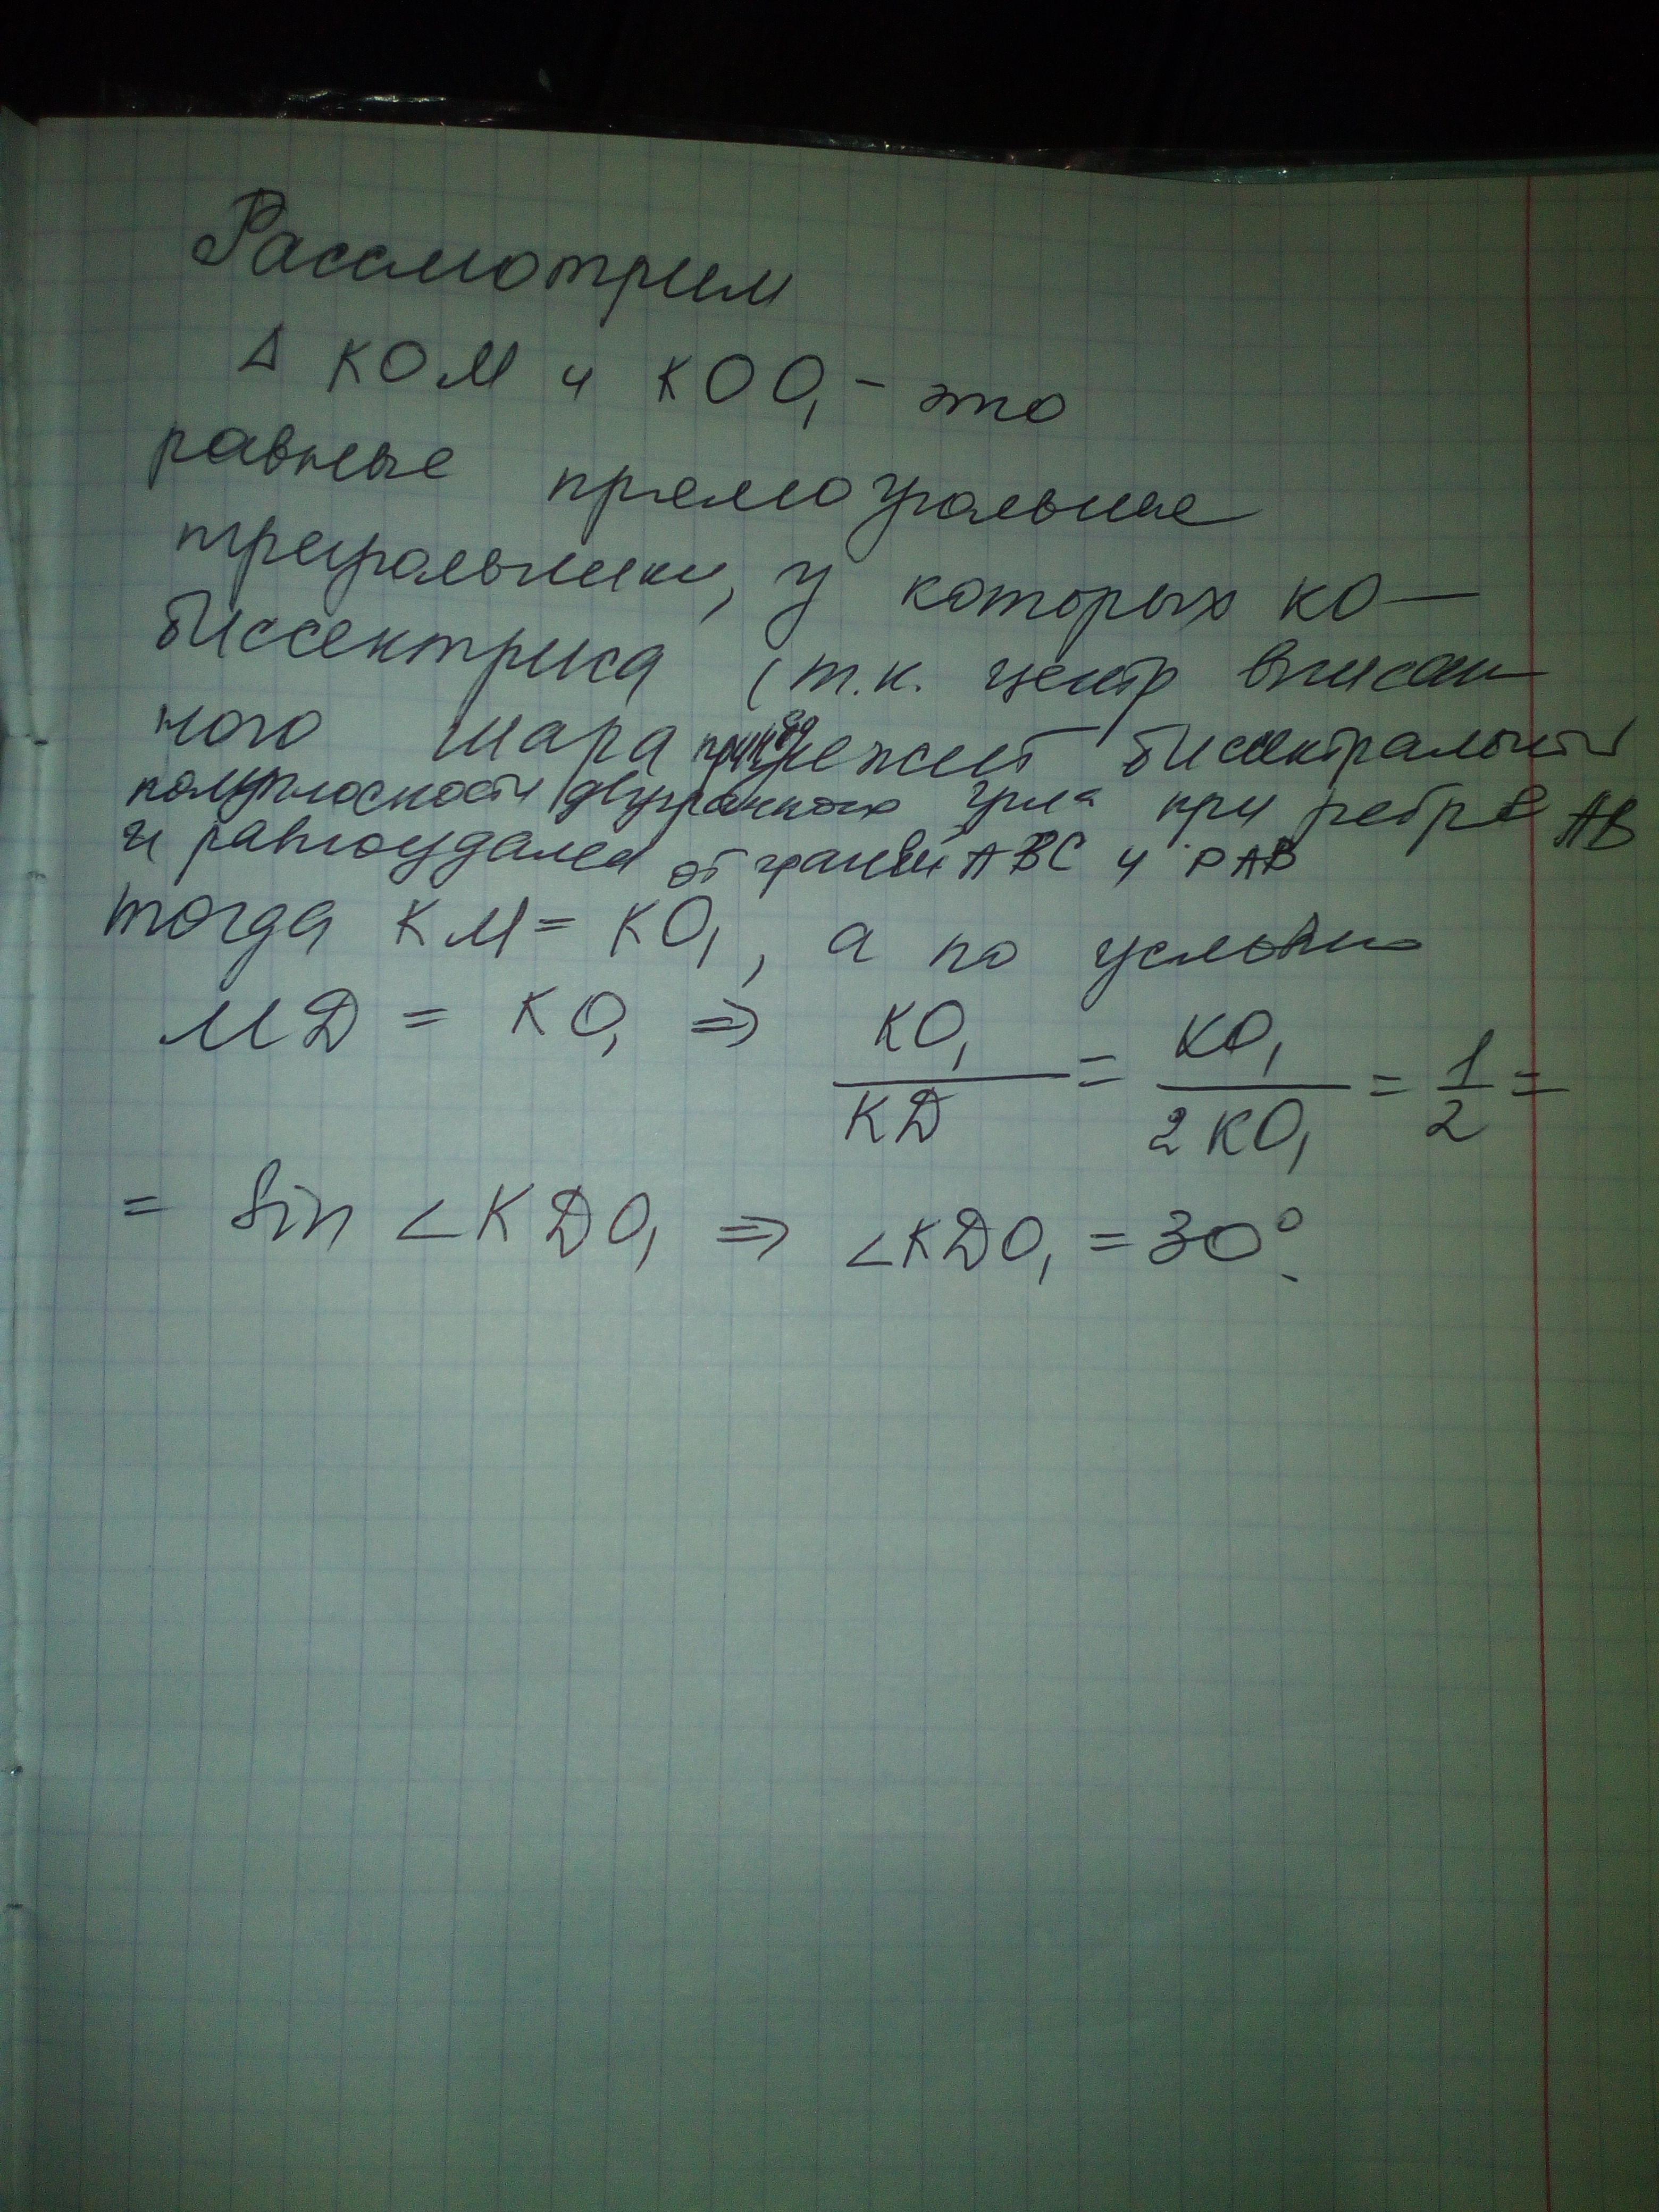 Рассмотрим
Δ KOM и KOO₁ - это
равные прямоугольные
треугольники, у которых KO —
биссектриса (т.к. центр вписан
ного шара принадлежит биссектральной
полуплоскости двугранного угла при ребре AB
и равноудален от граней ABC и PAB
тогда KM = KO₁, а по условию
MD = KO₁ ⇒ KO₁/KD = KO₁/2KO₁ = 1/2 =
= Sin ∠KDO₁ ⇒ ∠KDO₁ = 30°.